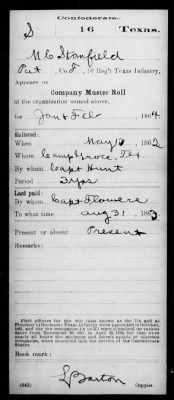 Confederate.
S 16 Texas.
N C Stanfield
Pvt, Co. , 16 Reg't Texas Infantry,
Appears on
Company Muster Roll
of the organization named above,
for Jan & Feb 1864
Enlisted:
When May 10 1862
Where Camp Groce, Tex
By whom Capt Hunt
Period 3 yrs
Last paid:
By whom Capt Flowers
To what time Aug 31 1863
Present or absent Present
Remarks:
Book mark:
L Barton
(642) Copyist.